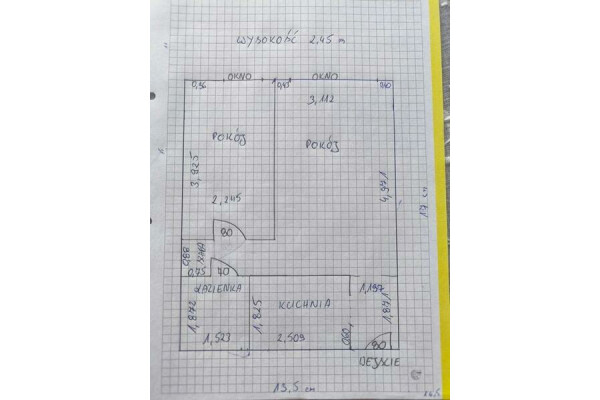 WYSOKOŚĆ 2,45 m
OKNO
OKNO
0,96
0,43
0,40
3,112
POKÓJ
POKÓJ
3,825
4,971
2,245
17 cm
80
0,88
0,75
70
ŁAZIENKA
KUCHNIA
1,197
1,872
1,825
1,871
1,523
2,509
0,60
80
WEJŚCIE
13,5 cm
16,5